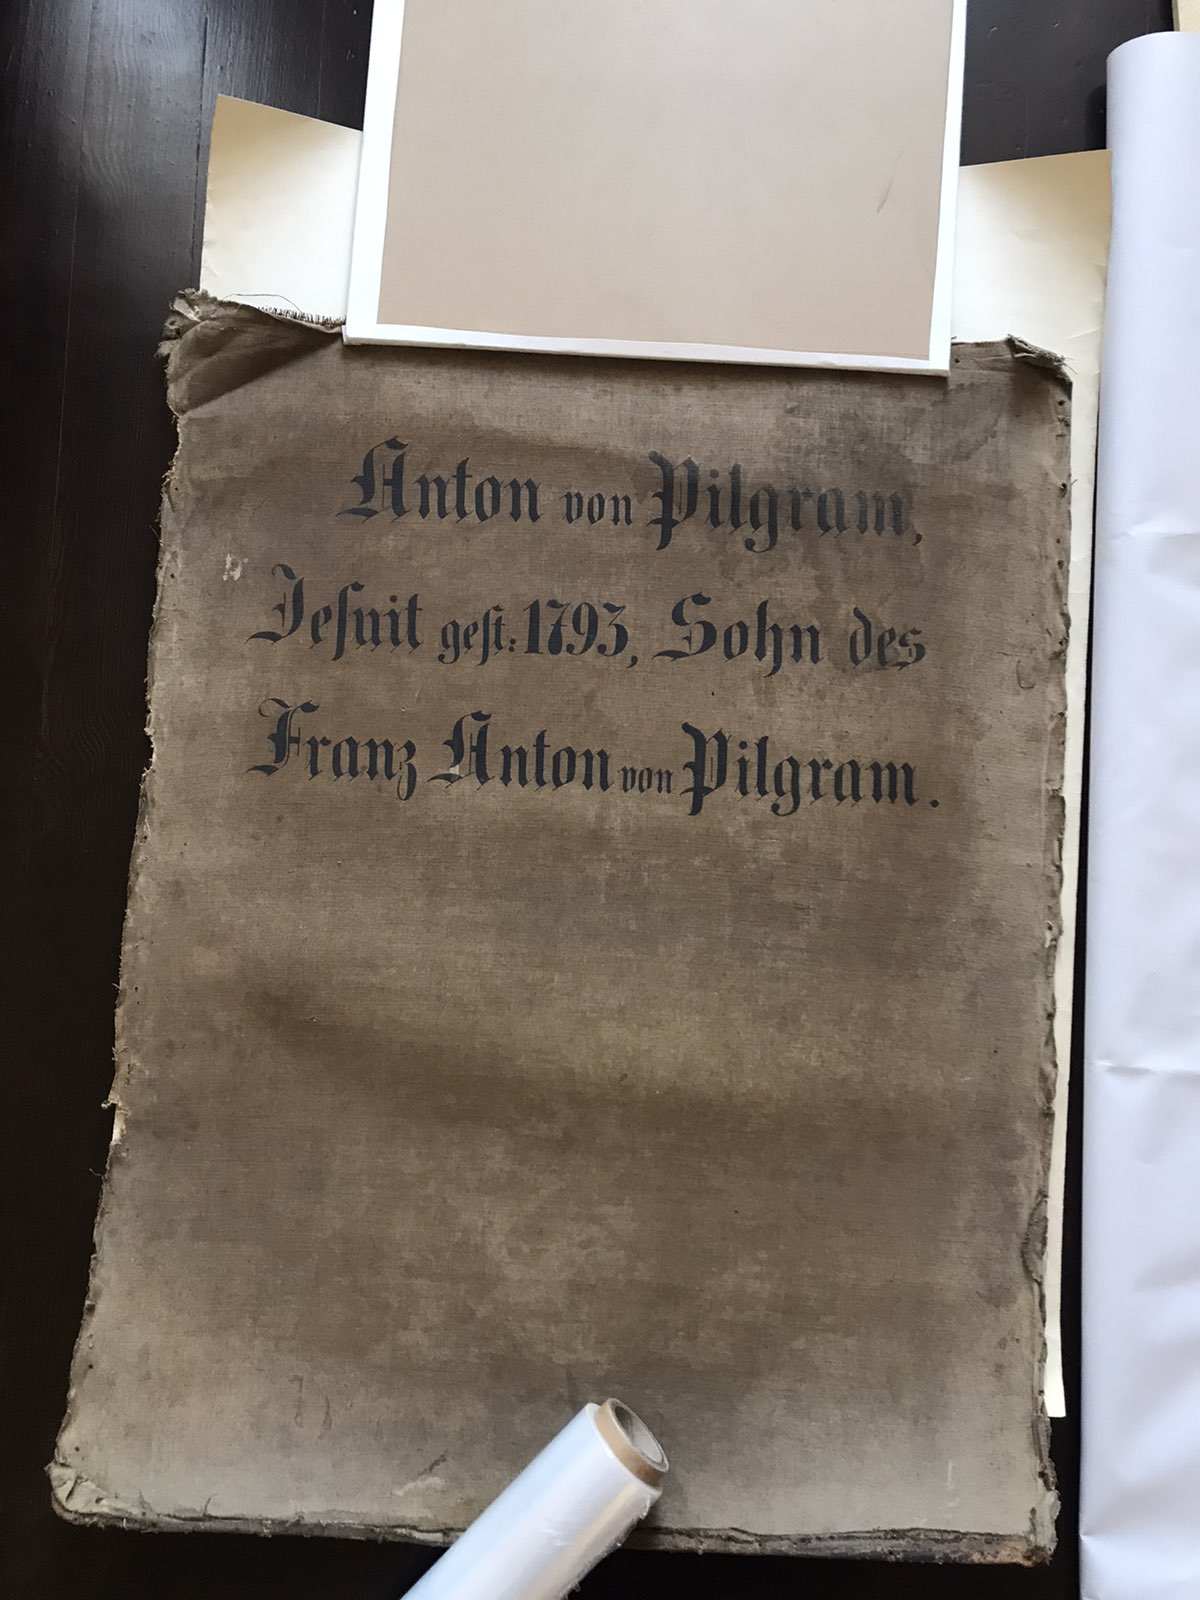 Anton von Pilgram,
Jeſuit geſt: 1793, Sohn des
Franz Anton von Pilgram.